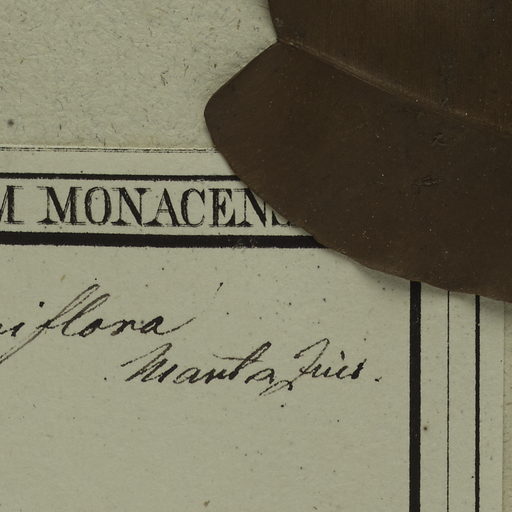 M MONACENS
iflora
Mart & Zucc.